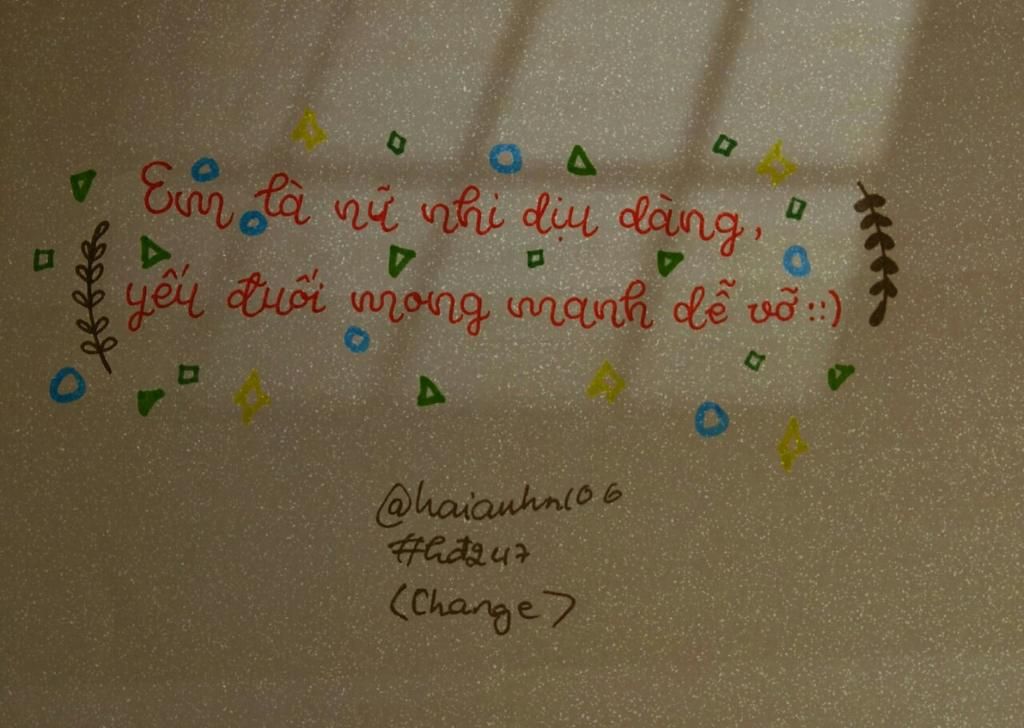 Em là nữ nhi dịu dàng,
yếu đuối mong manh dễ vỡ::)
@haianhn106
#hđ247
(Change)